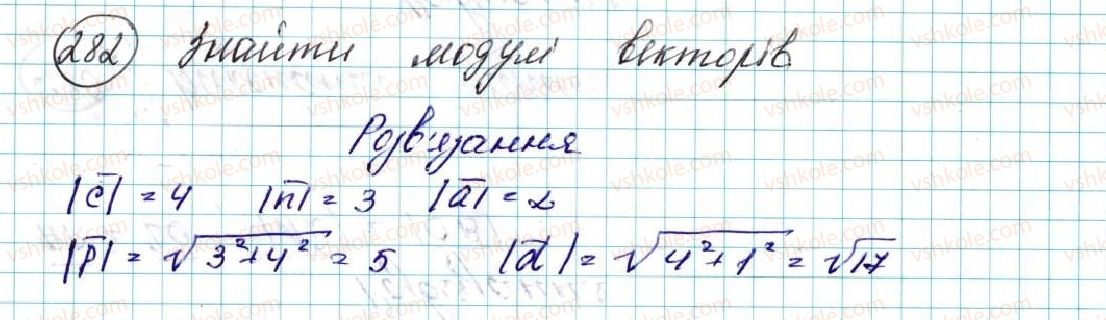 282 Знайти модулі векторів
Розв'язання
|c̅| = 4 |n̅| = 3 |a̅| = 2
|p̅| = √(3² + 4²) = 5 |d̅| = √(4² + 1²) = √17